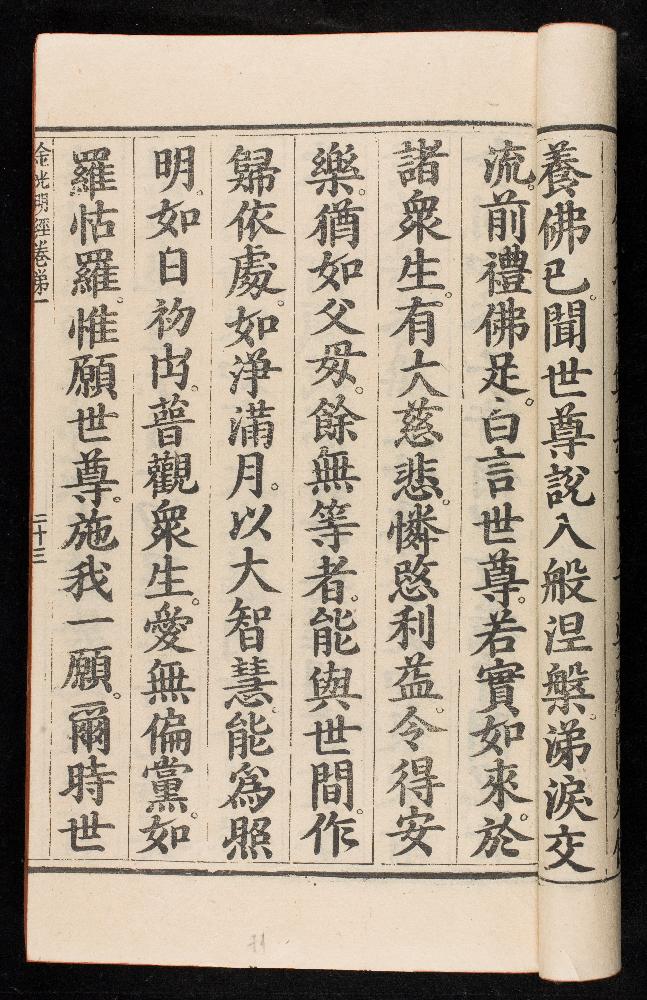 養佛已。聞世尊說入般涅槃。涕淚交
流。前禮佛足。白言世尊。若實如來。於
諸衆生。有大慈悲。憐愍利益。令得安
樂。猶如父母。餘無等者。能與世間。作
歸依處。如淨滿月。以大智慧。能爲照
明。如日初出。普觀衆生。愛無偏黨。如
羅怙羅。惟願世尊。施我一願。爾時世
金光明經卷第一
二十三